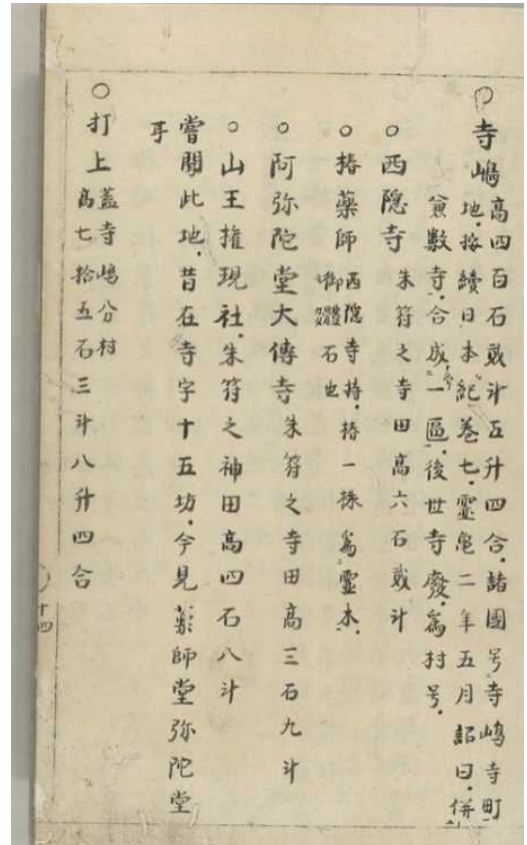 ○寺嶋高四百石貳斗五升四合、諸國号寺嶋寺町
地、按續日本紀卷七、靈亀二年五月詔曰、併
兼數寺、合成一區、後世寺廢、為村号、
○西隠寺朱符之寺田高六石貳斗
○椿薬師西隠寺持、椿一株為靈木、
御躰石也
○阿弥陀堂大傳寺朱符之寺田高三石九斗
○山王権現社、朱符之神田高四石八斗
嘗聞此地、昔在寺字十五坊、今見薬師堂弥陀堂
耳
○打上蓋寺嶋分村
高七拾五石三斗八升四合
十四